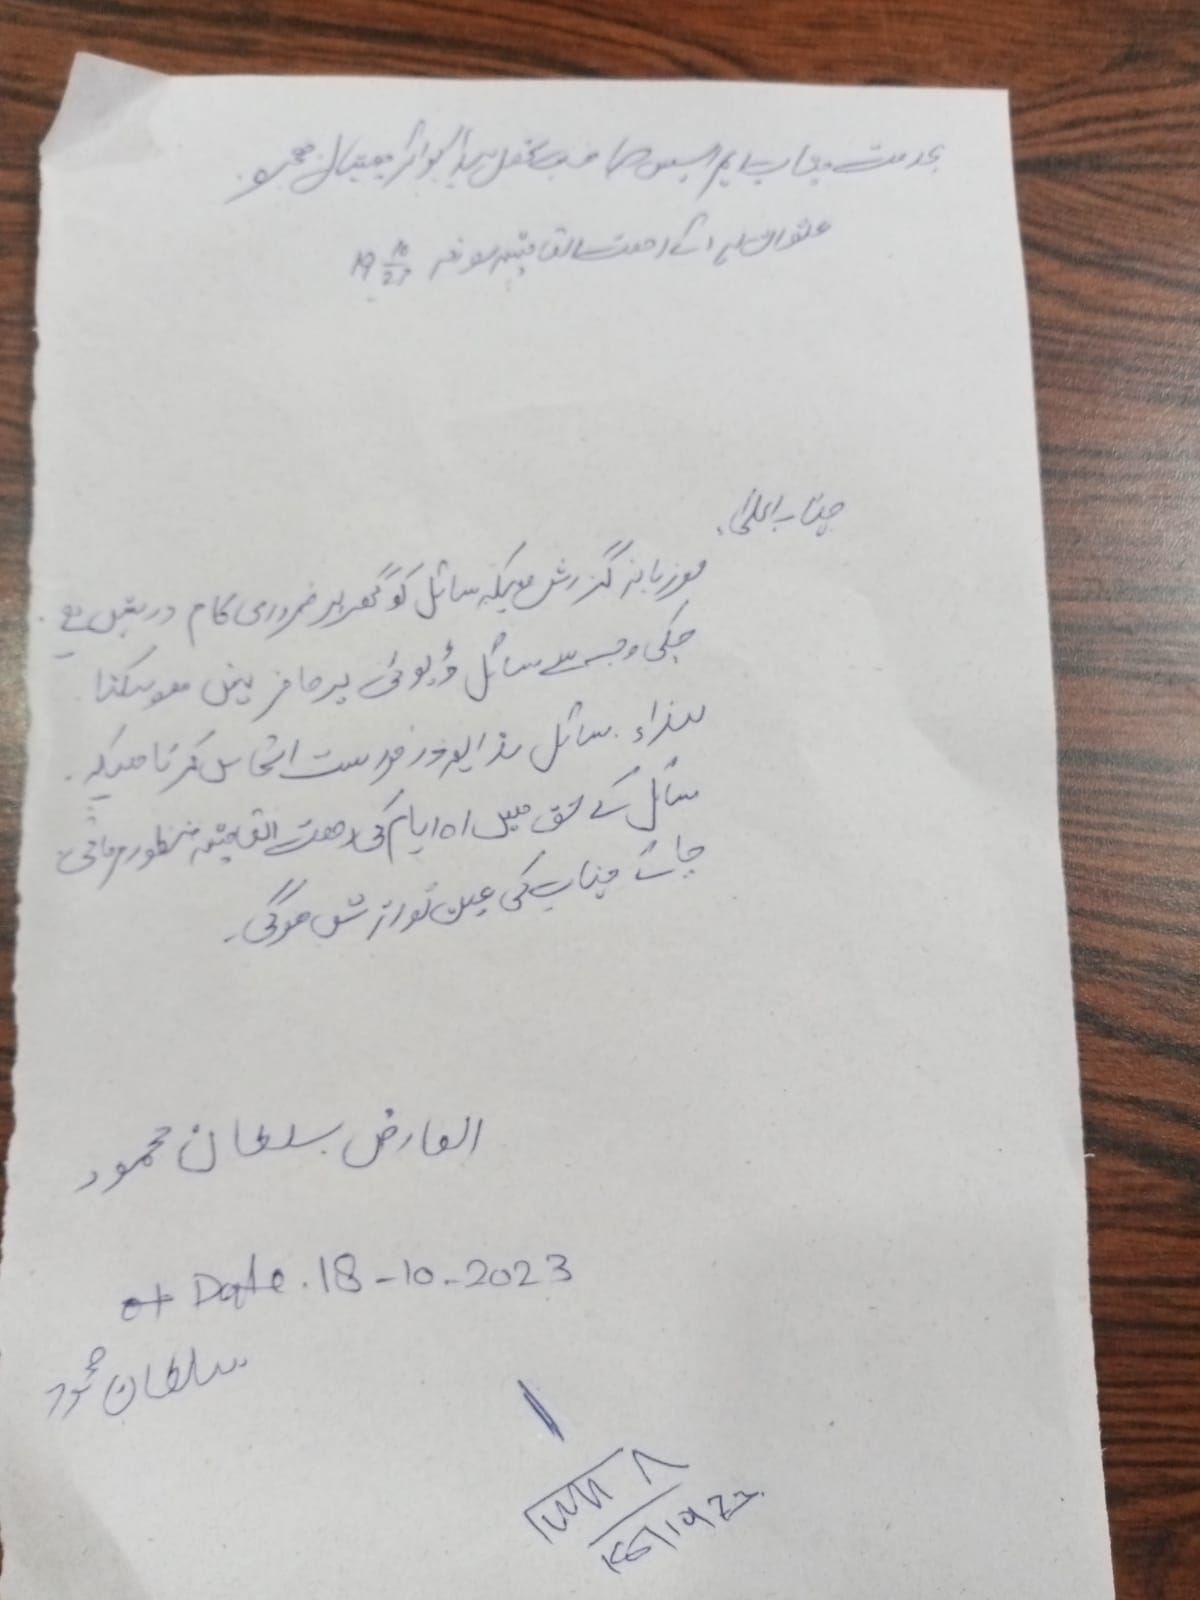 بخدمت جناب ایم ایس صاحب تحصیل ہیڈ کوارٹر ہسپتال
عنوان برائے رخصت اتفاقیہ مورخہ 19 10/23
جناب اعلیٰ
موزبانہ گزارش ہیکہ سائل کو گھر پر ضروری کام درپیش ہے۔
جکی وجہ سے سائل ڈیوٹی پر حاضر نہیں ہوسکتا
لہذاء سائل بذریعہ درخواست التماس کرتا ہیکہ
سائل کے حق میں ایام کی رخصت اتفاقیہ منظور فرمائی
جائے جناب کی عین نوازش ہوگی۔
العارض سلطان محمود
Date. 18-10-2023
سلطان محمود